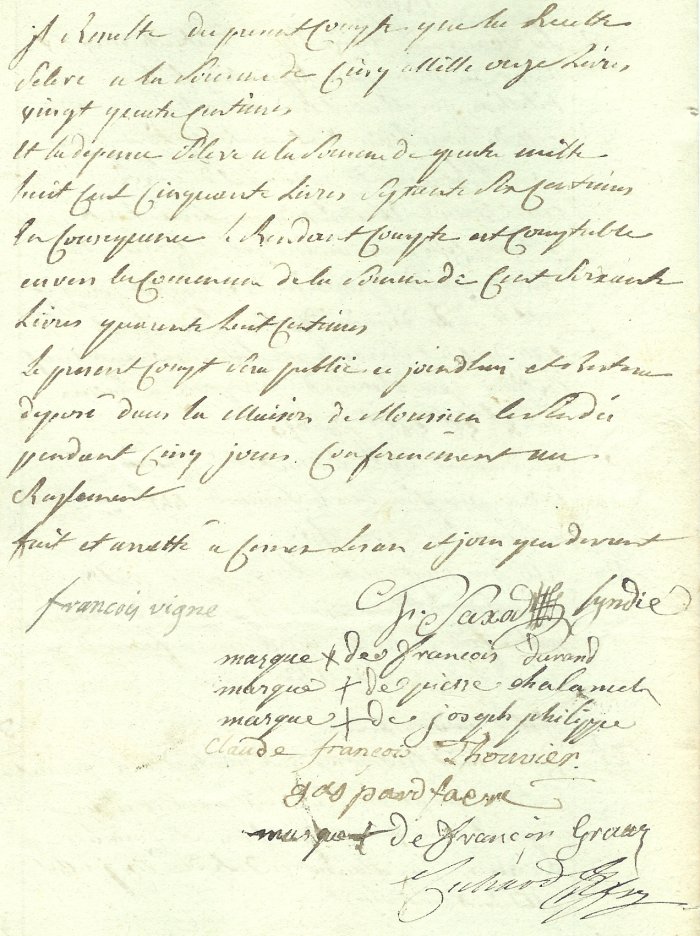 jl Resulte du present Compte que la Recette
S'eleve a la Somme de Cinq Mille onze Livres
vingt quatre Centimes
Et la depense S'eleve a la Somme de quatre mille
huit Cent Cinquante Livres Septante Six Centimes
En Consequence le Rendant Compte est Comptable
envers la Commune de la Somme de Cent Soixante
Livres quarante huit Centimes
Le present Compt sera publié ce jourdhui et Restera
deposé dans la Maison de Monsieur le Sindic
pendant Cinq jours Conformément au
Reglement
fait et arretté a Lesan et jour que devant
francois vigne
Syndic
marque + de francois durand
marque + de pierre chalamel
marque + de joseph philippe
Claude françois Thouvier
gaspard favre
marque + de francois